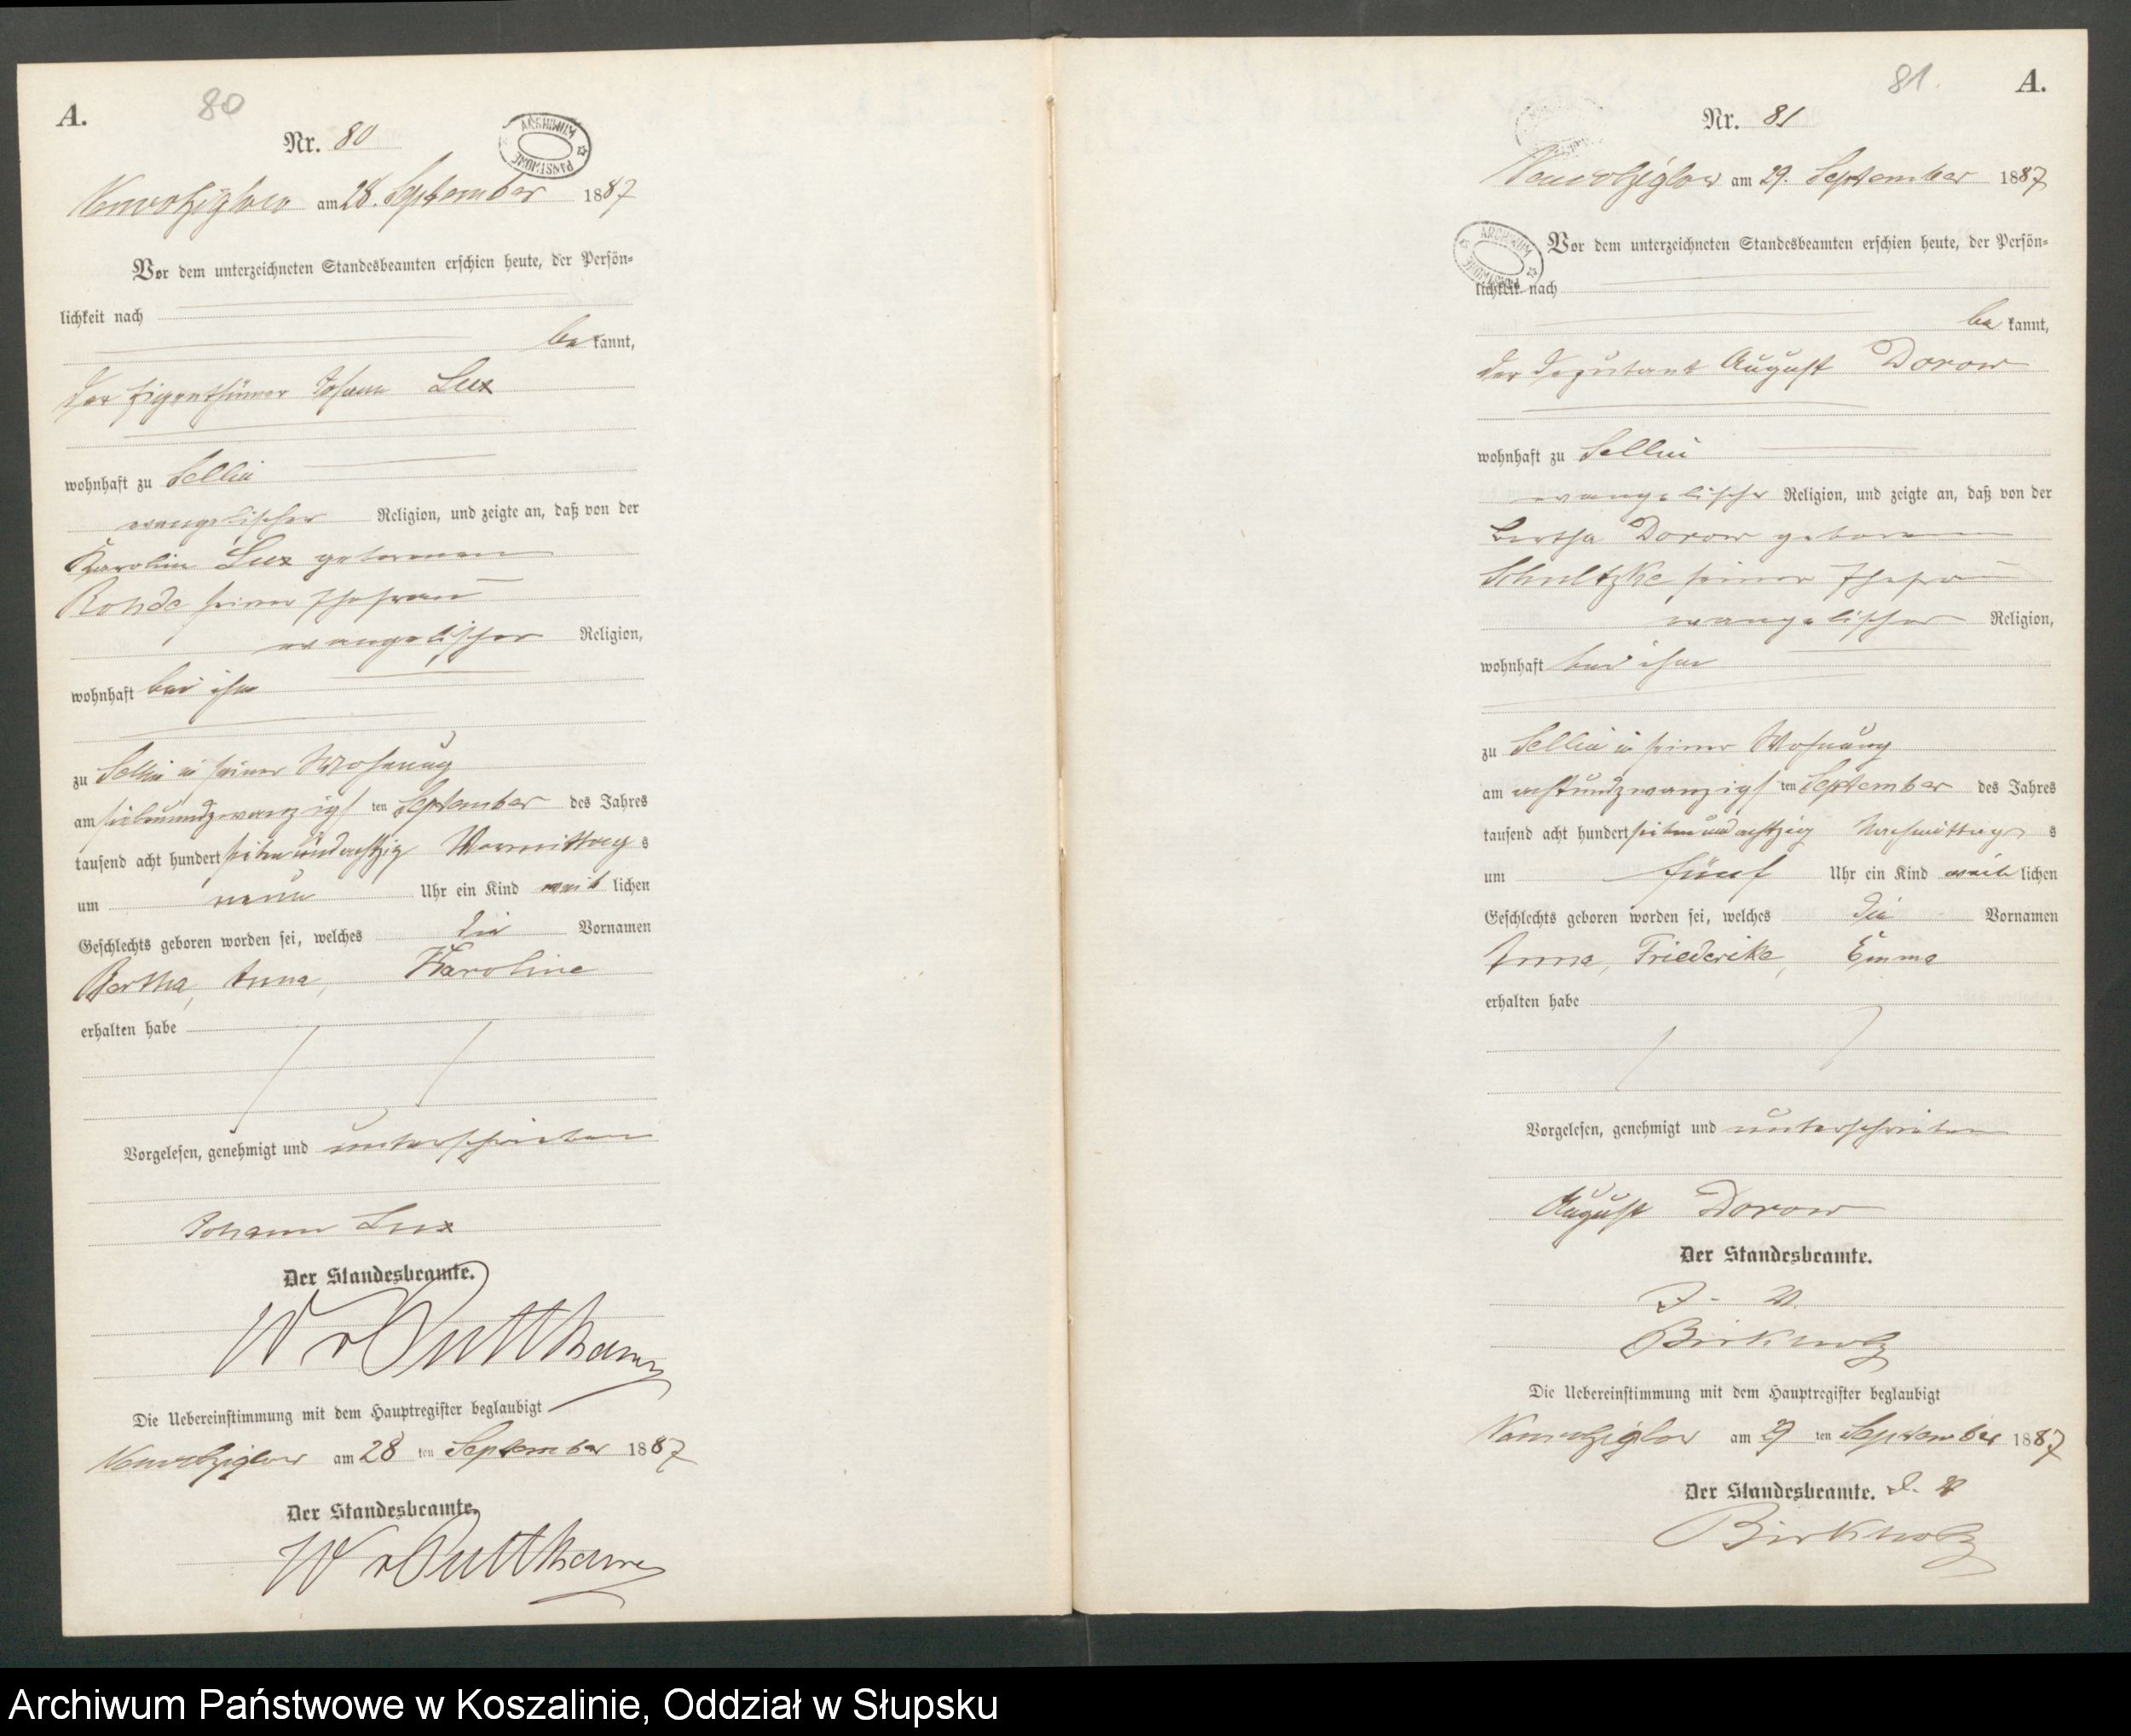 A.
80
Nr. 80
ARCHIWUM PAŃSTWOWE
am 28. September 1887
Vor dem unterzeichneten Standesbeamten erschien heute, der Persön-
lichkeit nach
be kannt,
der Eigenthümer Johann Lux
wohnhaft zu Sellin
evangelischer Religion, und zeigte an, daß von der
Karoline Lux geborenen
Rohde seiner Ehefrau
evangelischer Religion,
wohnhaft bei ihm
zu Sellin in seiner Wohnung
am siebenundzwanzigs ten September des Jahres
tausend acht hundert siebenundachtzig Vormittags
um neun Uhr ein Kind weib lichen
Geschlechts geboren worden sei, welches die Vornamen
Bertha, Anna, Karoline
erhalten habe
Vorgelesen, genehmigt und unterschrieben
Johann Lux
Der Standesbeamte.
W v Puttkamer
Die Uebereinstimmung mit dem Hauptregister beglaubigt
am 28 ten September 1887
Der Standesbeamte.
W v Puttkamer
81.
A.
Nr. 81
am 29. September 1887
ARCHIWUM PAŃSTWOWE
Vor dem unterzeichneten Standesbeamten erschien heute, der Persön-
lichkeit nach
be kannt,
der Deputant August Dorow
wohnhaft zu Sellin
evangelischer Religion, und zeigte an, daß von der
Bertha Dorow geborenen
Schultzke seiner Ehefrau
evangelischer Religion,
wohnhaft bei ihm
zu Sellin in seiner Wohnung
am achtundzwanzigs ten September des Jahres
tausend acht hundert siebenundachtzig Nachmittags
um fünf Uhr ein Kind weib lichen
Geschlechts geboren worden sei, welches die Vornamen
Anna, Friederike, Emma
erhalten habe
Vorgelesen, genehmigt und unterschrieben
August Dorow
Der Standesbeamte.
J. V.
Birkholz
Die Uebereinstimmung mit dem Hauptregister beglaubigt
am 29 ten September 1887
Der Standesbeamte. J. V
Birkholz
Archiwum Państwowe w Koszalinie, Oddział w Słupsku